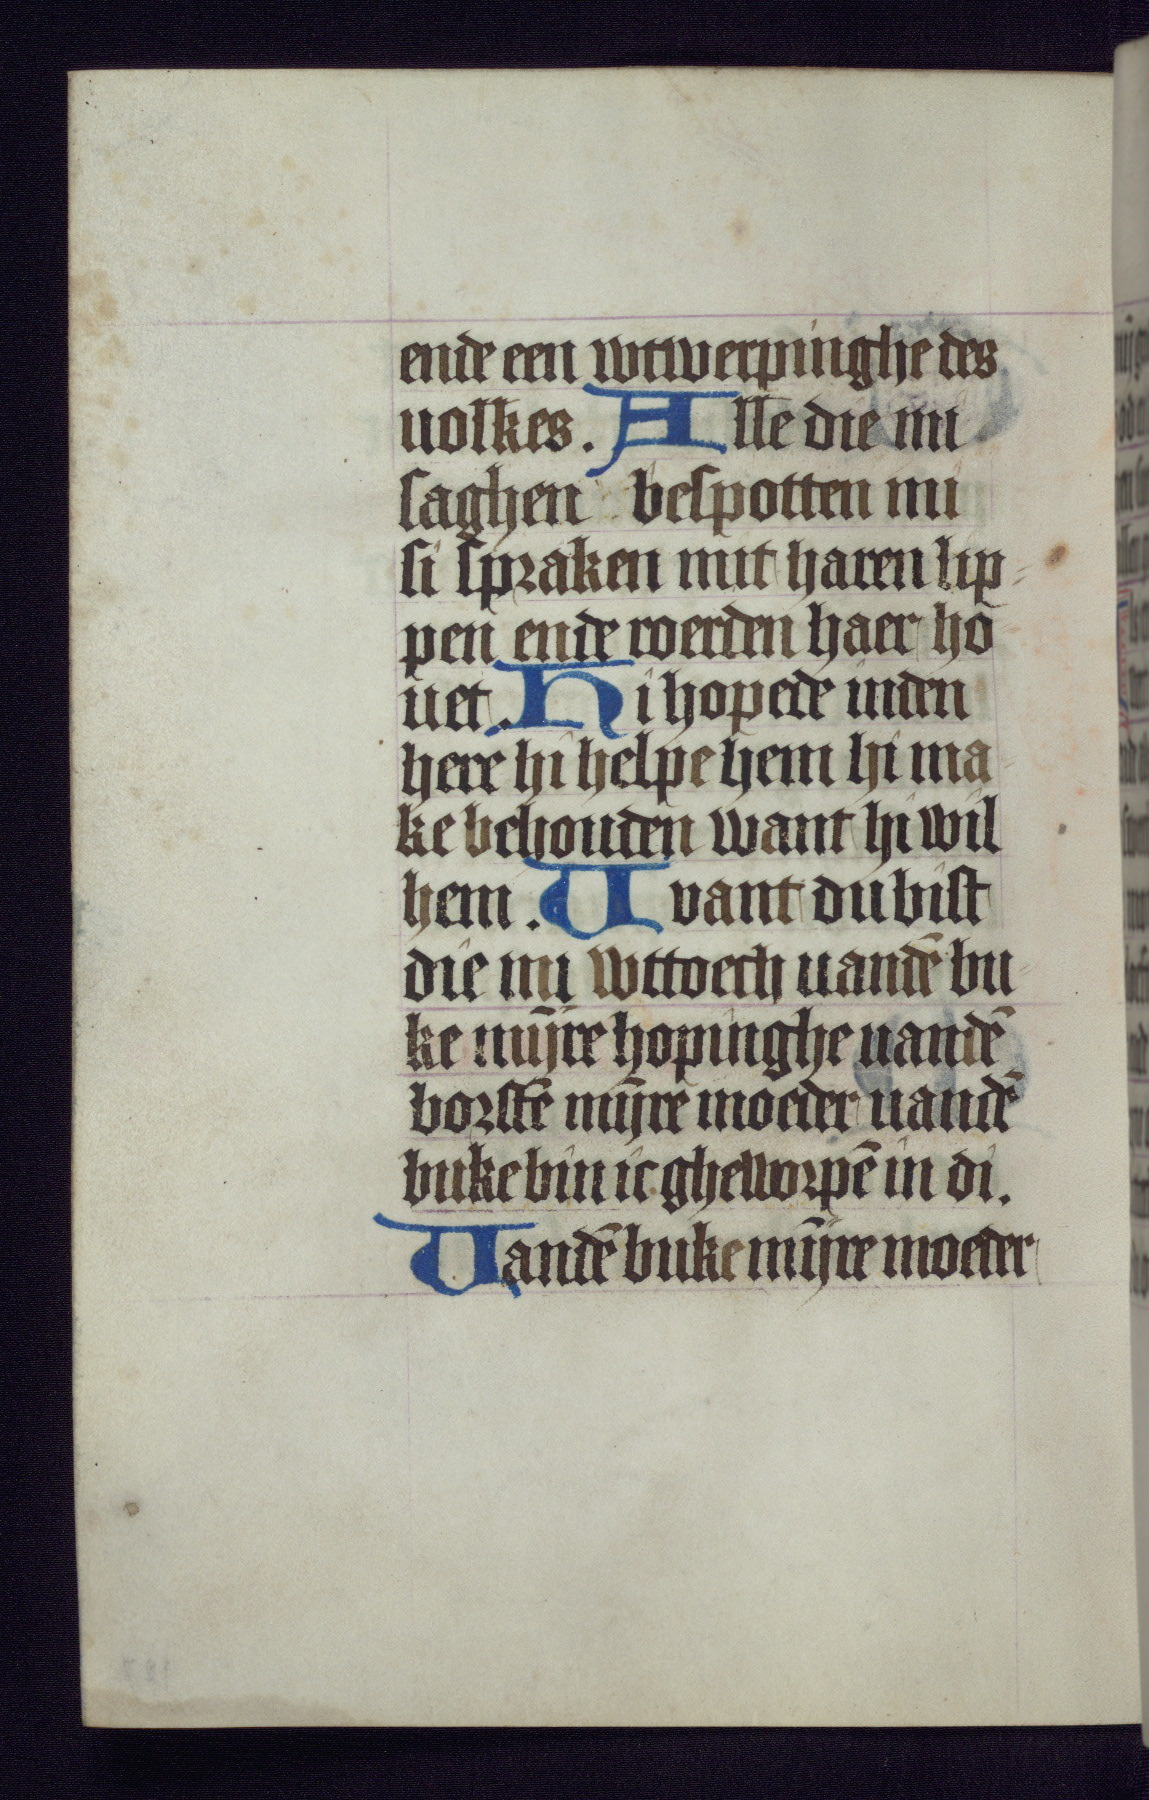 ende een wtwerpinghe des
uolkes. Alle die mi
saghen bespotten mi
si spraken mit haren lip
pen ende roerden haer ho
uet. Hi hopede inden
here hi helpe hem hi ma
ke behouden want hi wil
hem. Uvant du bist
die mi wttoech uandē bu
ke mijre hopinghe uandē
borstē mijre moeder uandē
buke bin ic gheworpē in di.
Uandē buke mijre moeder